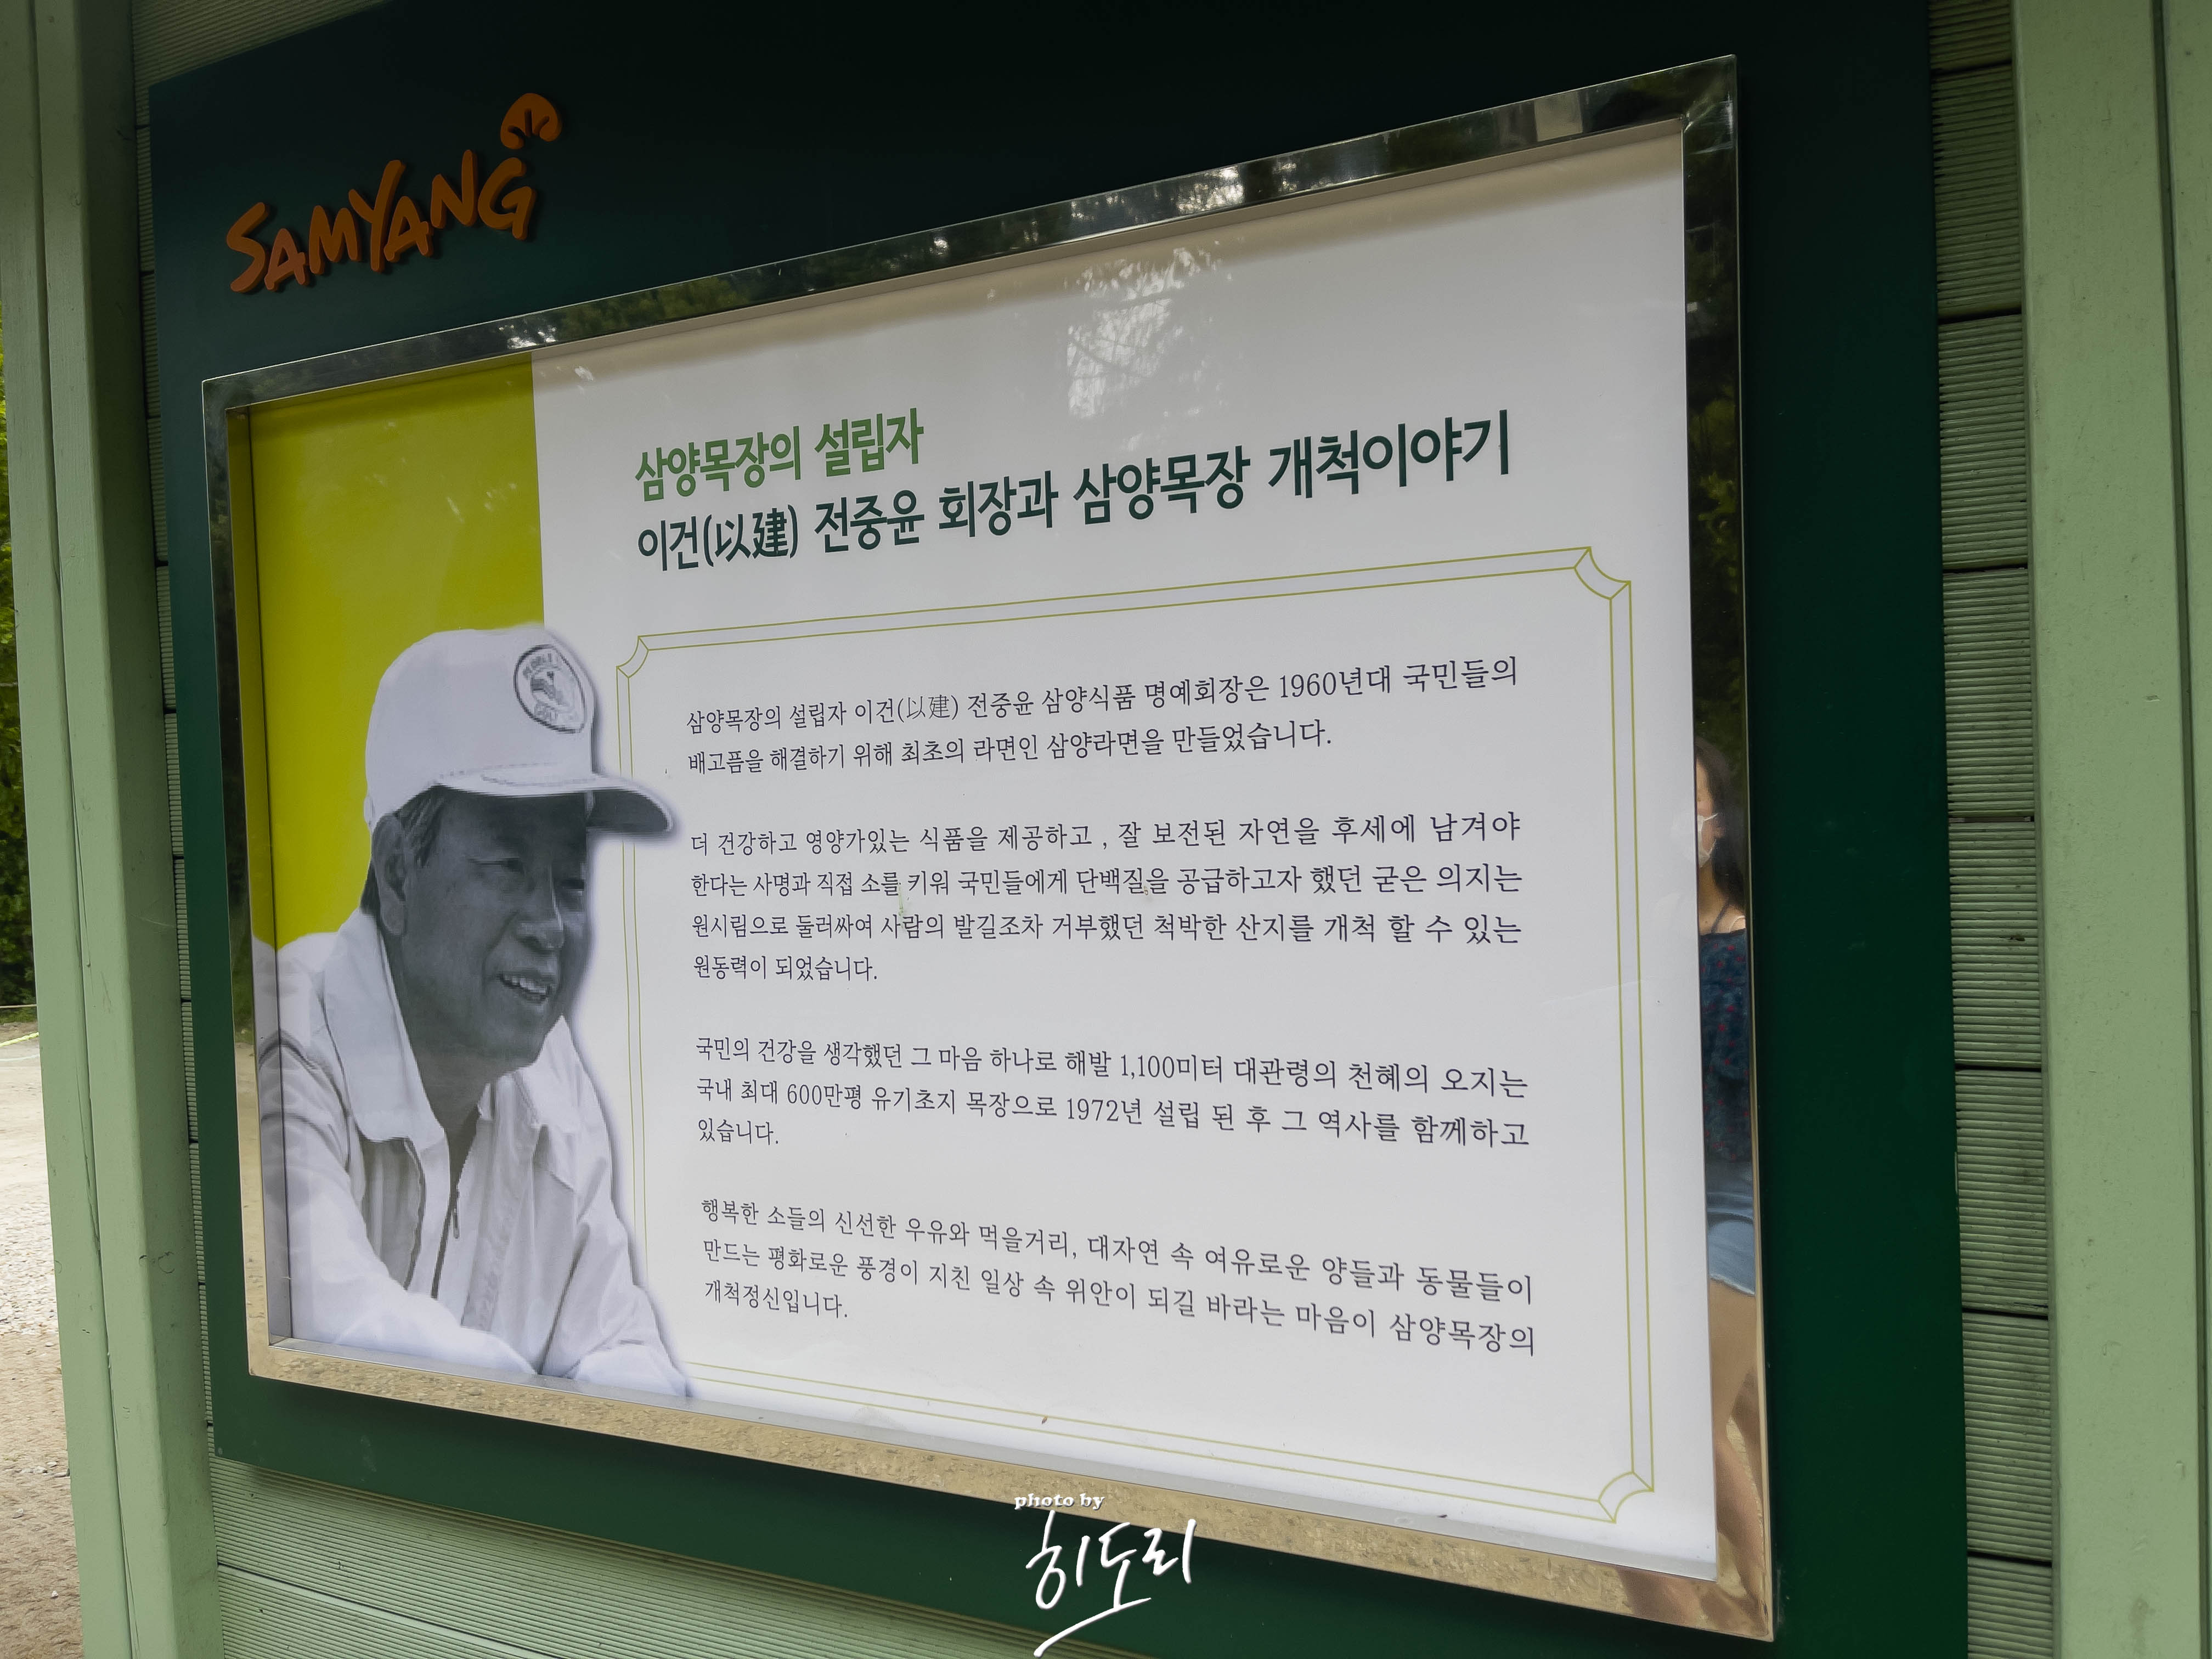 SAMYANG
삼양목장의 설립자
이건(以建) 전중윤 회장과 삼양목장 개척이야기
삼양목장의 설립자 이건(以建) 전중윤 삼양식품 명예회장은 1960년대 국민들의
배고픔을 해결하기 위해 최초의 라면인 삼양라면을 만들었습니다.
더 건강하고 영양가있는 식품을 제공하고 , 잘 보전된 자연을 후세에 남겨야
한다는 사명과 직접 소를 키워 국민들에게 단백질을 공급하고자 했던 굳은 의지는
원시림으로 둘러싸여 사람의 발길조차 거부했던 척박한 산지를 개척 할 수 있는
원동력이 되었습니다.
국민의 건강을 생각했던 그 마음 하나로 해발 1,100미터 대관령의 천혜의 오지는
국내 최대 600만평 유기초지 목장으로 1972년 설립 된 후 그 역사를 함께하고
있습니다.
행복한 소들의 신선한 우유와 먹을거리, 대자연 속 여유로운 양들과 동물들이
만드는 평화로운 풍경이 지친 일상 속 위안이 되길 바라는 마음이 삼양목장의
개척정신입니다.
photo by
히도리